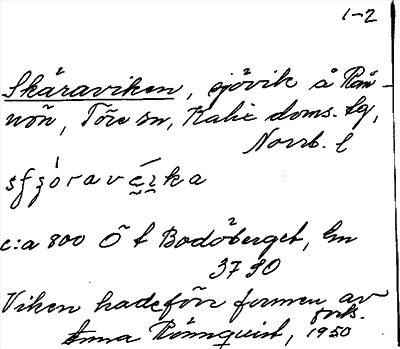 1-2
Skåraviken, sjövik å Rån-
nön, Töre sn, Kalix doms. tg,
Norrb. l
c:a 800 Ö t Bodöberget, Em
3790
Viken hade förr formen av
Anna Rönnquist, 1950